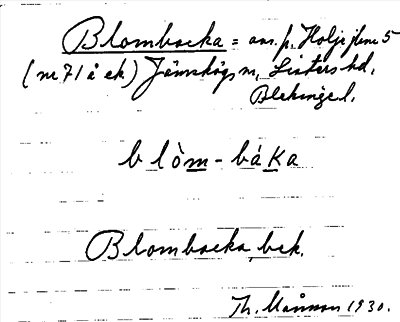 Blombacka = avs. p. Holje jbmo 5
(nr 71 å ek) Jämshögs sn, Listers hd,
Blekinge l.
blòm-báka
Blombacka, bek.
Th. Månsson 1930.